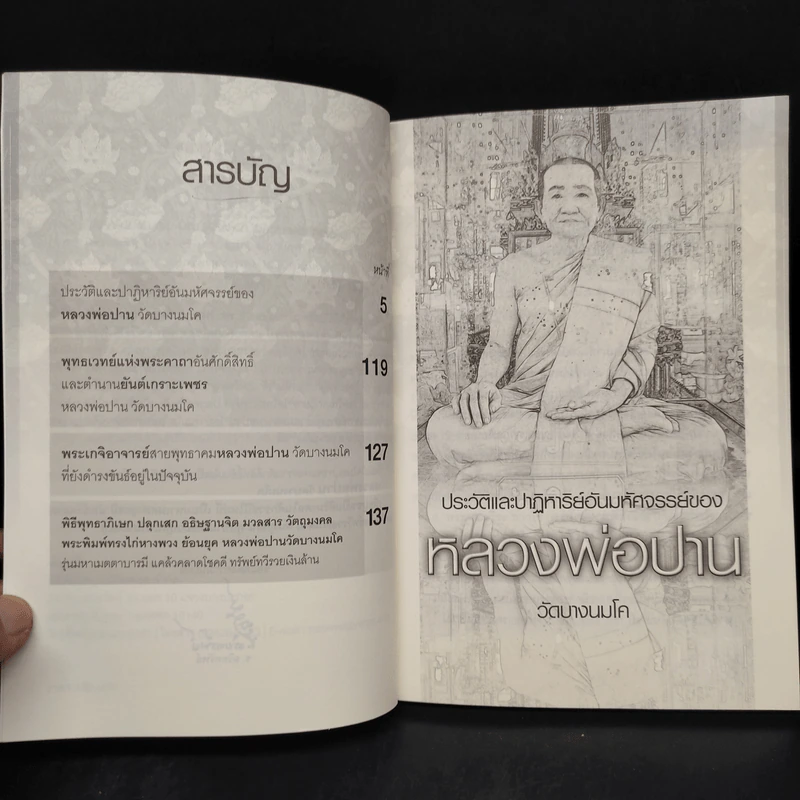 สารบัญ
หน้าที่
ประวัติและปาฏิหาริย์อันมหัศจรรย์ของ
หลวงพ่อปาน วัดบางนมโค
5
พุทธเวทย์แห่งพระคาถาอันศักดิ์สิทธิ์
และตำนานยันต์เกราะเพชร
หลวงพ่อปาน วัดบางนมโค
119
พระเกจิอาจารย์สายพุทธาคมหลวงพ่อปาน วัดบางนมโค
ที่ยังดำรงขันธ์อยู่ในปัจจุบัน
127
พิธีพุทธาภิเษก ปลุกเสก อธิษฐานจิต มวลสาร วัตถุมงคล
พระพิมพ์ทรงไก่หางพวง ย้อนยุค หลวงพ่อปานวัดบางนมโค
รุ่นมหาเมตตาบารมี แคล้วคลาดโชคดี ทรัพย์ทวีรวยเงินล้าน
137
ประวัติและปาฏิหาริย์อันมหัศจรรย์ของ
หลวงพ่อปาน
วัดบางนมโค